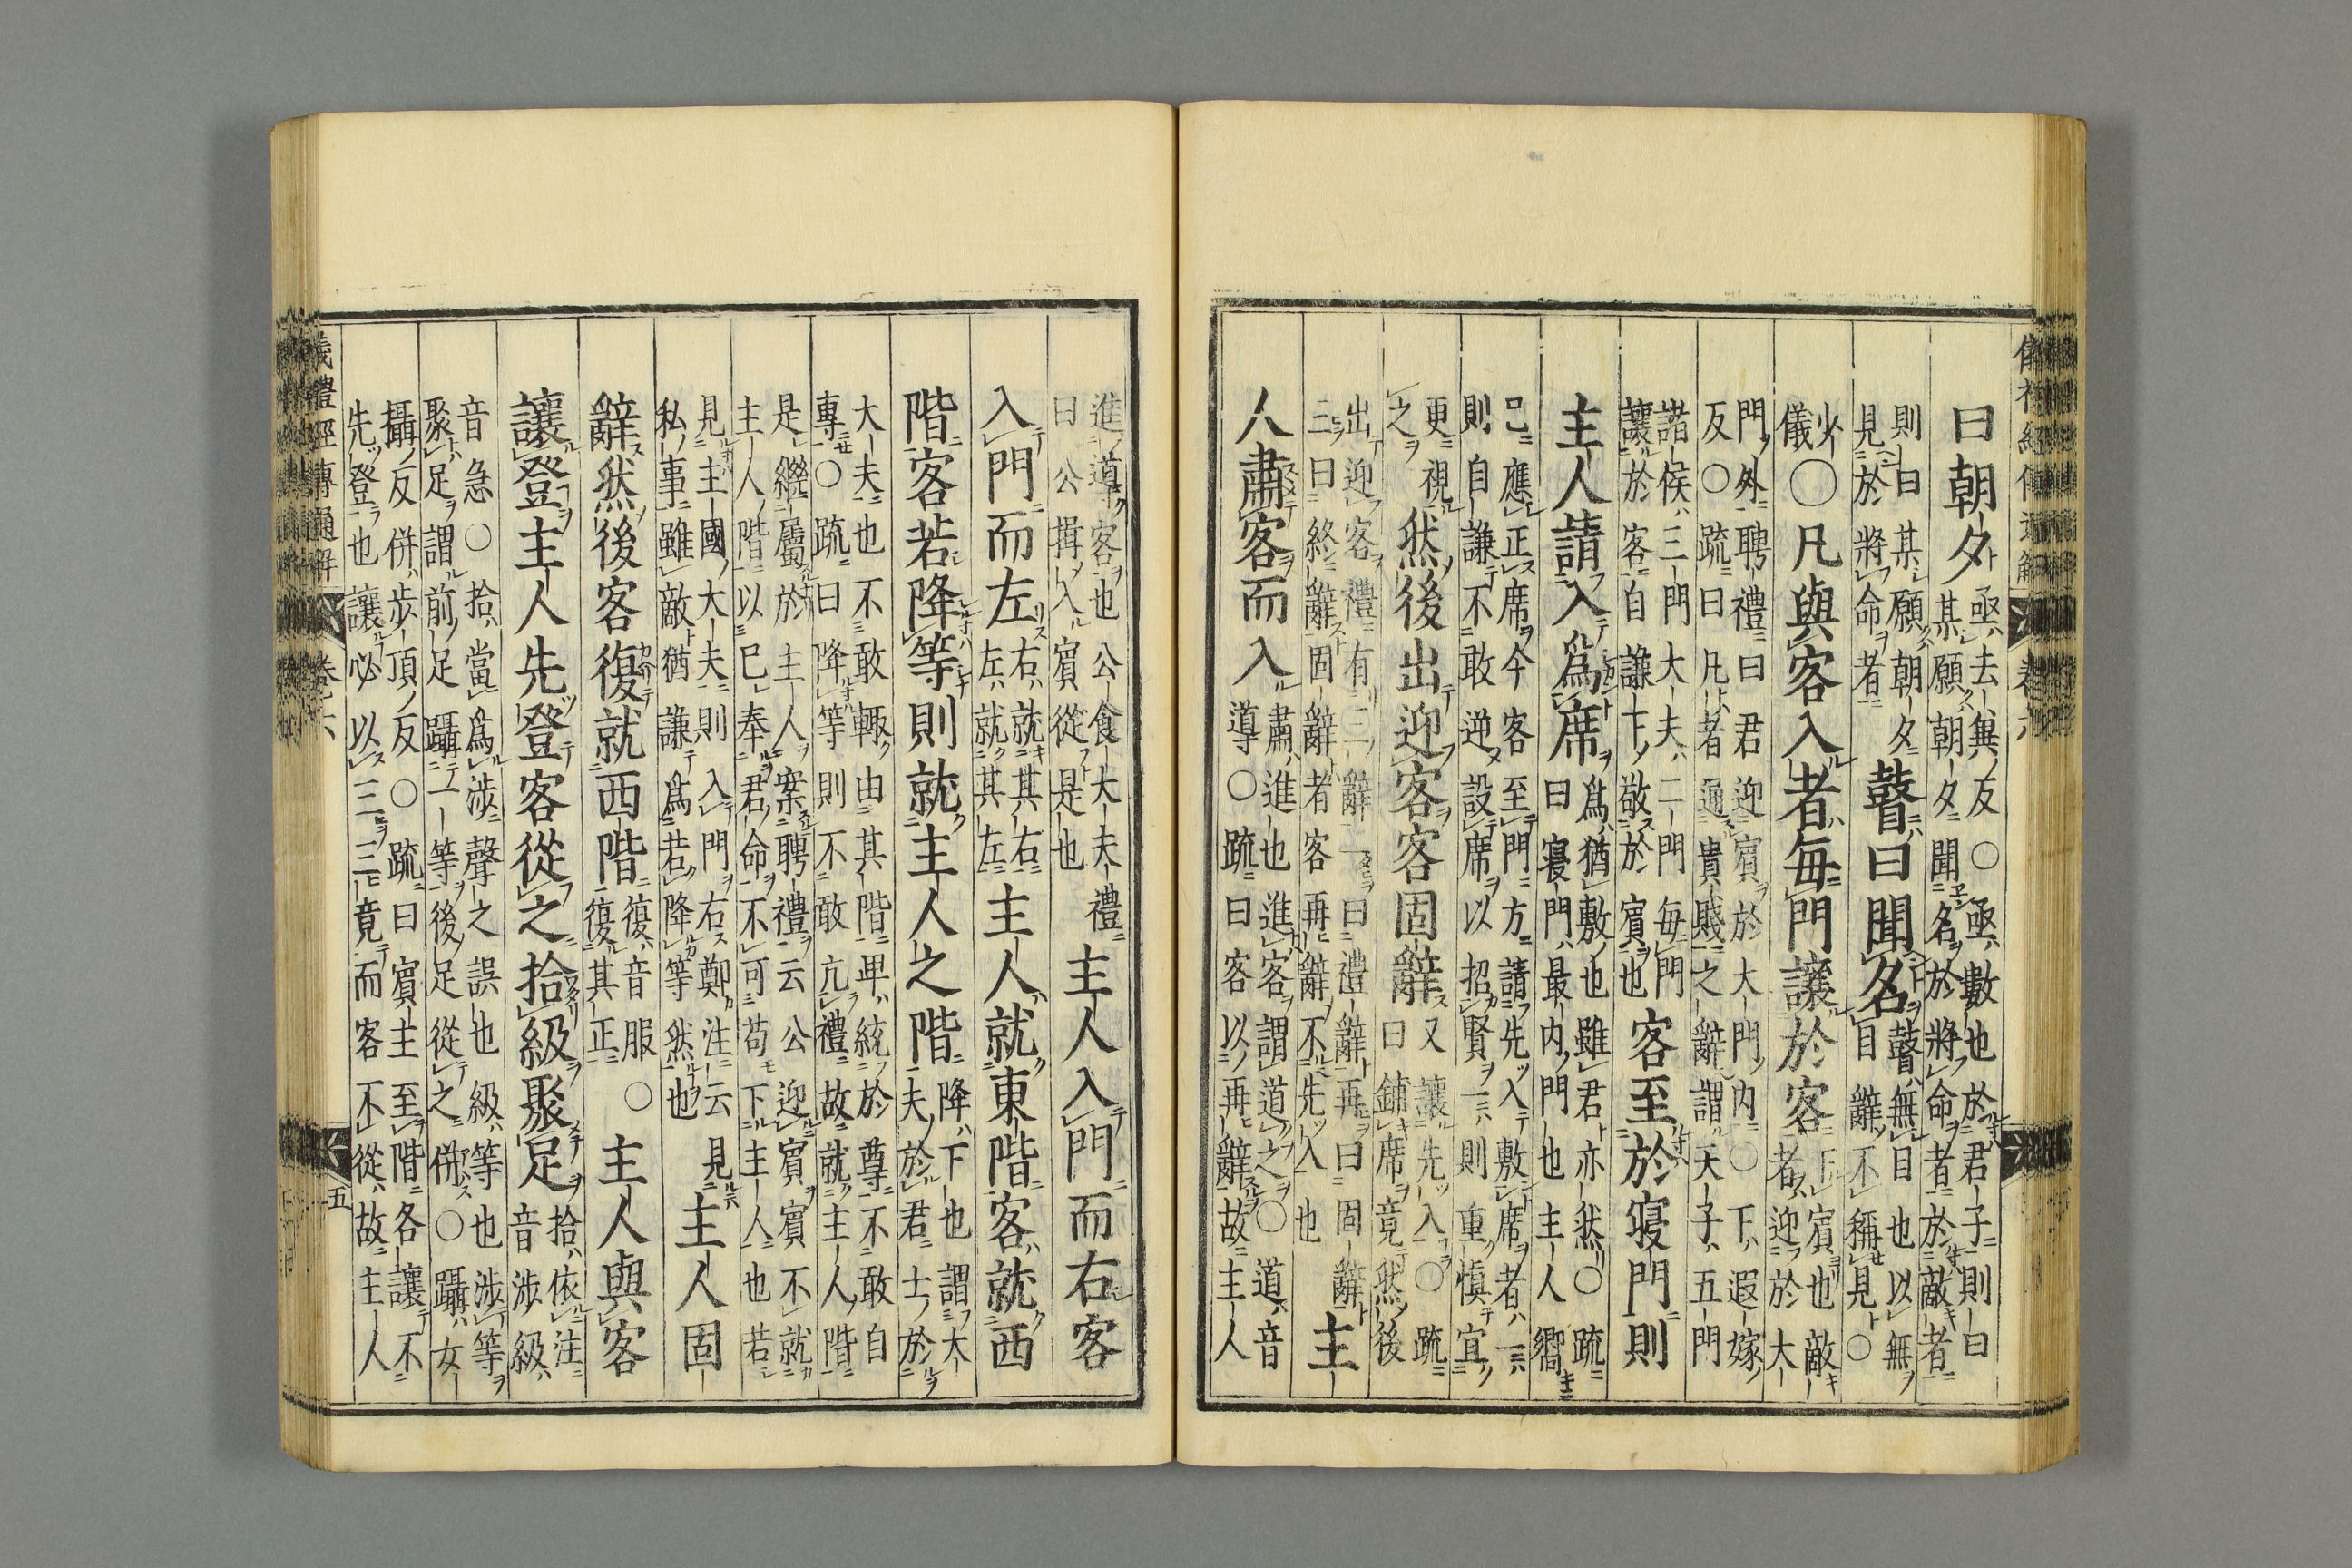 儀禮經傳通解 卷六
曰朝夕
亟去兾反○亟數也於君子則曰
某願朝夕聞名於將命者於敵者
則曰某願朝夕
見於將命者
瞽曰聞名
瞽無目也以無
目辭不稱見○
少
儀
○凡與客入者每門讓於客
下賓也敵
者迎於大
門外聘禮曰君迎賓於大門内○下遐嫁
反○疏曰凡者通貴賤之辭謂天子五門
諸侯三門大夫二門每門
讓於客自謙下敬於賓也
客至於寢門則
主人請入爲席
爲猶敷也雖君亦然○疏
曰寢門最内門也主人嚮
已應正席今客至門方請先入敷席者一
則自謙不敢逆設席以招賢一則重愼宜
更視
之
然後出迎客客固辭
又讓先入○疏
曰鋪席竟然後
出迎客禮有三辭一曰禮辭再曰固辭
三曰終辭固辭者客再辭不先入也
主
人肅客而入
肅進也進客謂道之○道音
導○疏曰客以再辭故主人
進道客也公食大夫禮
曰公揖入賓從是也
主人入門而右客
入門而左
右就其右
左就其左
主人就東階客就西
階客若降等則就主人之階
降下也謂大
夫於君士於
大夫也不敢輙由其階卑統於尊不敢自
專○疏曰降等則不敢亢禮故就主人階
是繼屬於主人案聘禮云公迎賓賓不就
主人階以已奉君命不可苟下主人也若
見主國大夫則入門右鄭注云見
私事雖敵猶謙爲若降等然也
主人固
辭然後客復就西階
復音服○
復其正
主人與客
讓登主人先登客從之拾級聚足
拾依注
音涉級
音急○拾當爲涉聲之誤也級等也涉等
聚足謂前足躡一等後足從之併○躡女
攝反併步頂反○疏曰賓主至階各讓不
先登也讓必以三三竟而客不從故主人
儀禮經傳通解 卷六 五